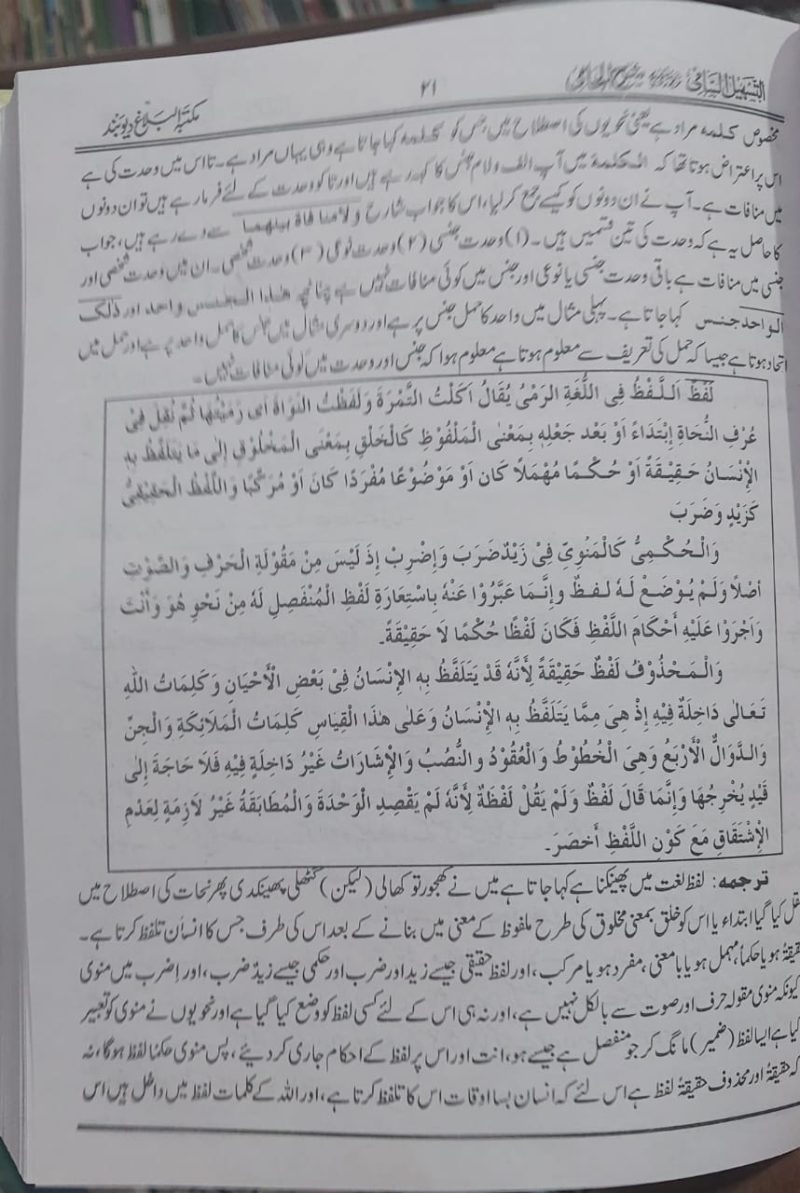 التسہیل السامی
۲۱
مکتبۃ البلاغ دیوبند
مخصوص کلمہ مراد ہے یعنی نحویوں کی اصطلاح میں جس کو کلمہ کہا جاتا ہے وہی یہاں مراد ہے۔ تا اس میں وحدت کی ہے
اس پر اعتراض ہوتا تھا کہ الکلمۃ میں آپ الف و لام جنس کا کہہ رہے ہیں اور تا کو وحدت کے لئے فرما رہے ہیں تو ان دونوں
میں منافات ہے۔ آپ نے ان دونوں کو کیسے جمع کر لیا، اس کا جواب شارح ولا منافاۃ بینھما سے دے رہے ہیں، جواب
کا حاصل یہ ہے کہ وحدت کی تین قسمیں ہیں۔ (۱) وحدت جنسی (۲) وحدت نوعی (۳) وحدت شخصی۔ ان میں وحدت شخصی اور
جنسی میں منافات ہے باقی وحدت جنسی یا نوعی اور جنس میں کوئی منافات نہیں ہے چنانچہ ھذا الجنس واحد اور ذلک
الواحد جنس کہا جاتا ہے۔ پہلی مثال میں واحد کا حمل جنس پر ہے اور دوسری مثال میں جنس کا حمل واحد پر ہے اور حمل میں
اتحاد ہوتا ہے جیسا کہ حمل کی تعریف سے معلوم ہوتا ہے معلوم ہوا کہ جنس اور وحدت میں کوئی منافات نہیں۔
لَفْظٌ اَلـلَّـفْـظُ فِی اللُّغَةِ الرَّمْیُ یُقَالُ اَکَلْتُ التَّمْرَةَ وَلَفَظْتُ النَّوَاةَ اَی رَمَیْتُهَا ثُمَّ نُقِلَ فِیْ
عُرْفِ النُّحَاةِ اِبْتِدَاءً اَوْ بَعْدَ جَعْلِهٖ بِمَعْنٰی الْمَلْفُوْظِ کَالْخَلْقِ بِمَعْنَی الْمَخْلُوْقِ اِلٰی مَا یَتَلَفَّظُ بِهِ
الْاِنْسَانُ حَقِیْقَةً اَوْ حُکْمًا مُهْمَلًا کَان اَوْ مَوْضُوْعًا مُفْرَدًا کَانَ اَوْ مُرَکَّبًا وَاللَّفْظُ الْحَقِیْقِیُّ
کَزَیْدٍ وَضَرَبَ
وَالْـحُـکْـمِیُّ کَالْمَنْوِیِّ فِیْ زَیْدٌ ضَرَبَ وَاِضْرِبْ اِذْ لَیْسَ مِنْ مَقُوْلَةِ الْحَرْفِ وَالصَّوْتِ
اَصْلًا وَلَمْ یُـوْضَـعْ لَـهٗ لَـفـظٌ وإِنَّـمَا عَبَّرُوْا عَنْهُ بِاسْتِعَارَةِ لَفْظِ الْمُنْفَصِلِ لَهٗ مِنْ نَحْوِ هُوَ وَأَنْتَ
وَاَجْرَوْا عَلَیْهِ أَحْکَامَ اللَّفْظِ فَکَانَ لَفْظًا حُکْمًا لَا حَقِیْقَةً۔
وَالْـمَـحْذُوْفُ لَفْظٌ حَقِیْقَةً لِأَنَّهٗ قَدْ یَتَلَفَّظُ بِهٖ الْإِنْسَانُ فِیْ بَعْضِ الْأَحْیَانِ وَکَلِمَاتُ اللهِ
تَـعَـالٰی دَاخِلَةٌ فِیْهِ إِذْ هِیَ مِمَّا یَتَلَفَّظُ بِهِ الْإِنْسَانُ وَعَلٰی هٰذَا الْقِیَاسِ کَلِمَاتُ الْمَلَائِکَةِ وَالْجِنِّ
وَالـدَّوَالُّ الْأَرْبَعُ وَهِیَ الْخُطُوْطُ وَالْعُقُوْدُ والـنُّصُبُ وَالْإِشَارَاتُ غَیْرُ دَاخِلَةٍ فِیْهِ فَلَا حَاجَةَ إِلٰی
قَیْدٍ یُخْرِجُهَا وَإِنَّمَا قَالَ لَفْظٌ وَلَمْ یَقُلْ لَفْظَةٌ لِأَنَّهٗ لَمْ یَقْصِدِ الْوَحْدَةَ وَالْمُطَابَقَةُ غَیْرُ لَازِمَةٍ لِعَدْمِ
الْإِشْتِقَاقِ مَعَ کَوْنِ اللَّفْظِ أَخصَرَ۔
ترجمہ: لفظ لغت میں پھینکنا ہے کہا جاتا ہے میں نے کھجور تو کھالی (لیکن) گٹھلی پھینکدی پھر نحات کی اصطلاح میں
نقل کیا گیا ابتداء یا اس کو خلق بمعنی مخلوق کی طرح ملفوظ کے معنی میں بنانے کے بعد اس کی طرف جس کا انسان تلفظ کرتا ہے۔
حقیقۃً ہو یا حکماً، مہمل ہو یا با معنی، مفرد ہو یا مرکب، اور لفظ حقیقی جیسے زید اور ضرب اور حکمی جیسے زیدٌ ضرب، اور اِضرب میں منوی
کیونکہ منوی مقولہ حرف اور صوت سے بالکل نہیں ہے، اور نہ ہی اس کے لئے کسی لفظ کو وضع کیا گیا ہے اور نحویوں نے منوی کو تعبیر
کیا ہے ایسا لفظ (ضمیر) مانگ کر جو منفصل ہے جیسے ہو، انت اور اس پر لفظ کے احکام جاری کر دیئے، پس منوی حکمًا لفظ ہوگا، نہ
کہ حقیقۃً اور محذوف حقیقۃً لفظ ہے اس لئے کہ انسان بسا اوقات اس کا تلفظ کرتا ہے، اور اللہ کے کلمات لفظ میں داخل ہیں اس